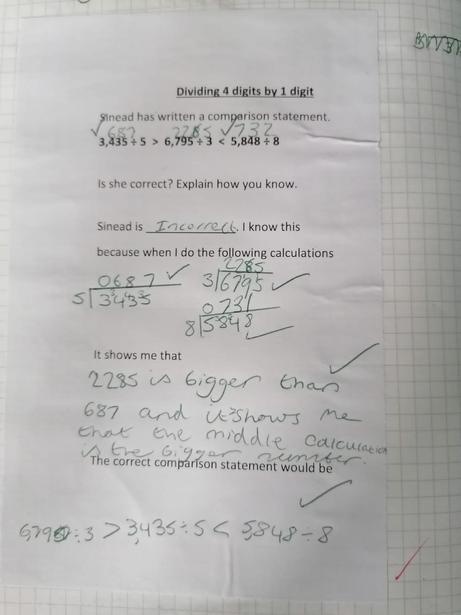 Dividing 4 digits by 1 digit
Sinead has written a comparison statement.
687 2285 732
3,435 ÷ 5 > 6,795 ÷ 3 < 5,848 ÷ 8
Is she correct? Explain how you know.
Sinead is Incorrect. I know this
because when I do the following calculations
2285
0687 3 6795
5 3435 0731
8 5848
It shows me that
2285 is bigger than
687 and it shows me
that the middle calculation
is the bigger number.
The correct comparison statement would be
6,795 ÷ 3 > 3,435 ÷ 5 < 5,848 ÷ 8